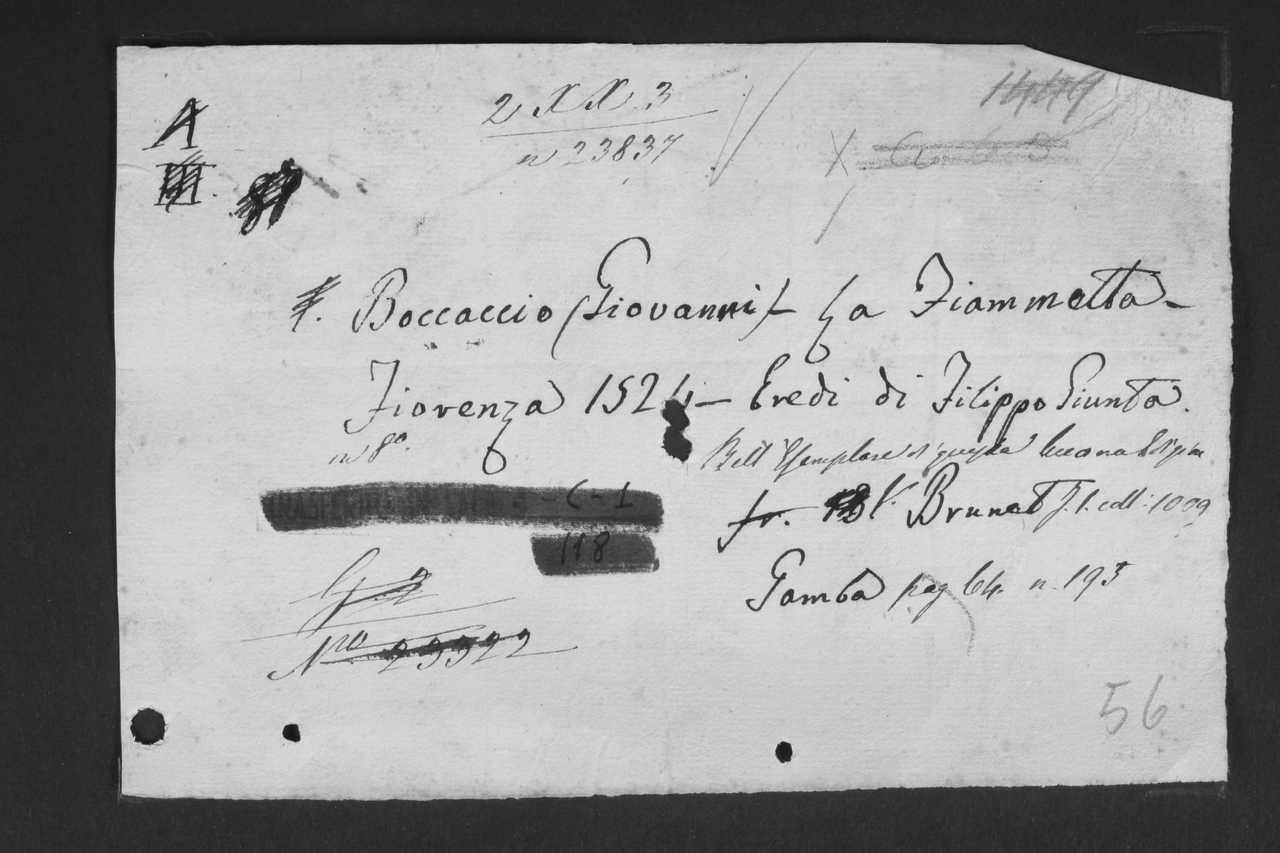 A
2 XX 3
n 23837
1449
X
Boccaccio (Giovanni) - La Fiammetta -
Fiorenza 1524 - Eredi di Filippo Giunta.
in 8º.
Bell'Esemplare di questa buona Edizin
- C - I
fr. Vi Brunet T. 1. coll: 1009
118
Gamba pag 64. n. 195
Nro 23322
56